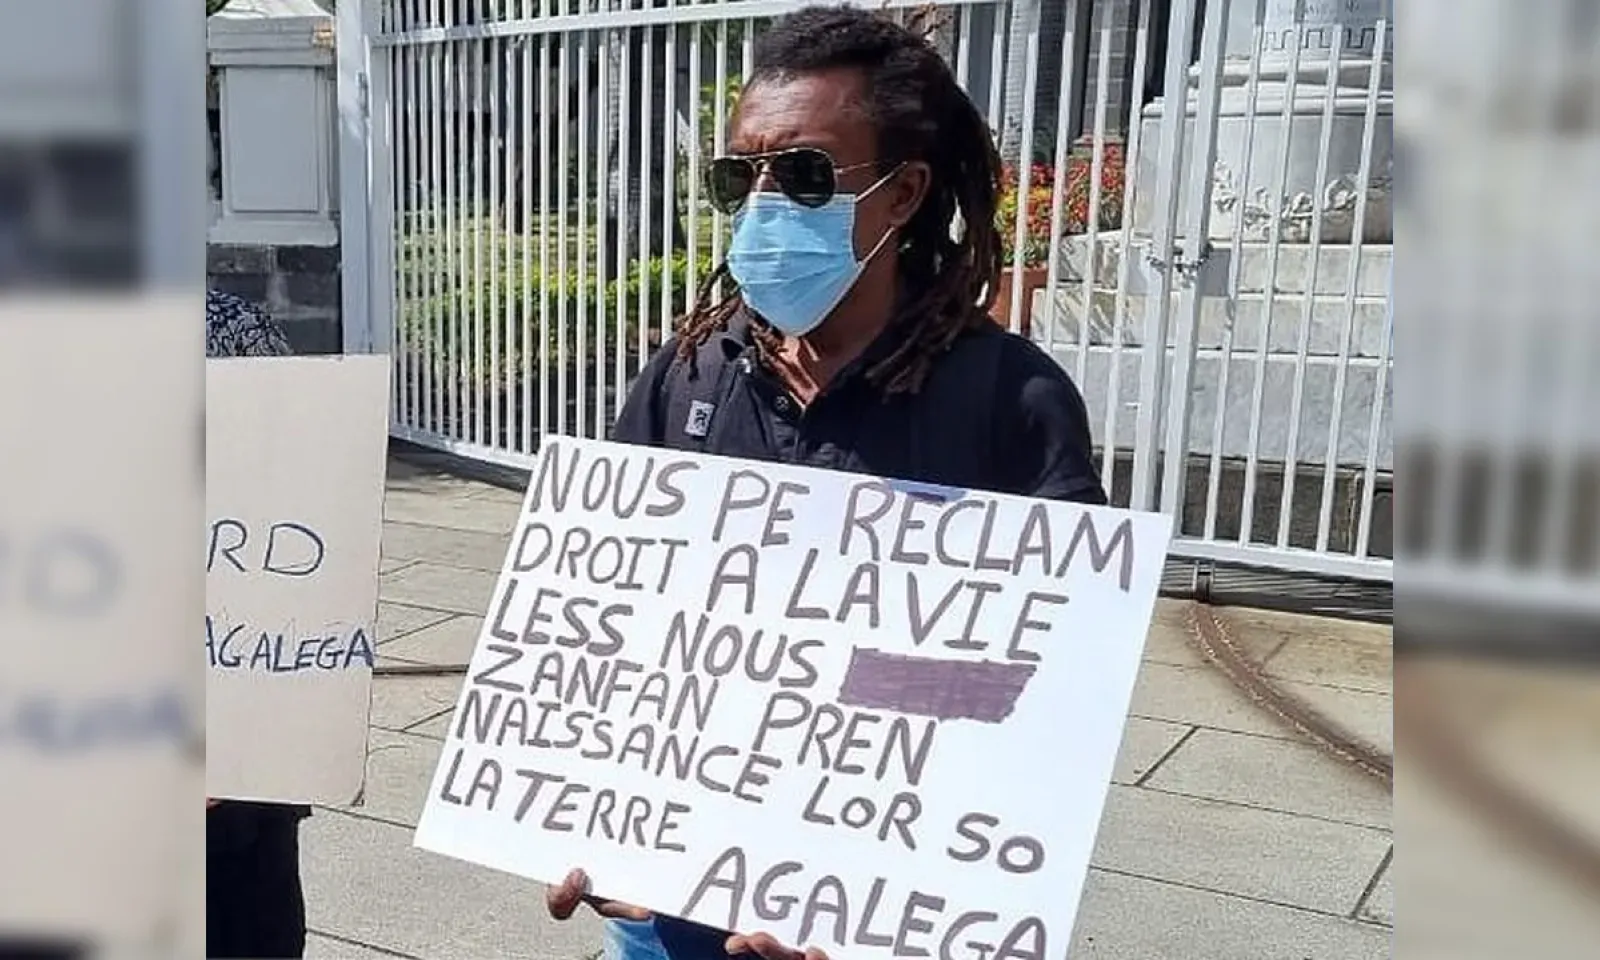 RD
AGALEGA
NOUS PE RECLAM
DROIT A LA VIE
LESS NOUS
ZANFAN PREN
NAISSANCE LOR SO
LA TERRE AGALEGA